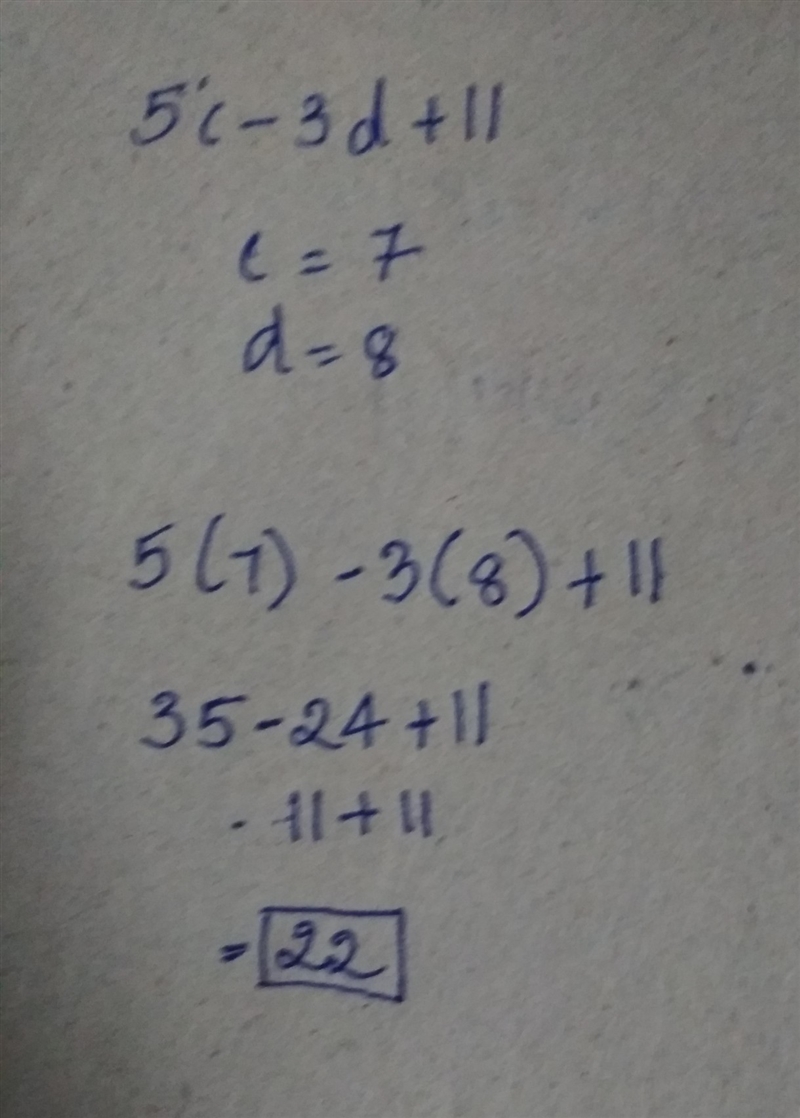 5c - 3d + 11
c = 7
d = 8
5(7) - 3(8) + 11
35 - 24 + 11
- 11 + 11
= 22